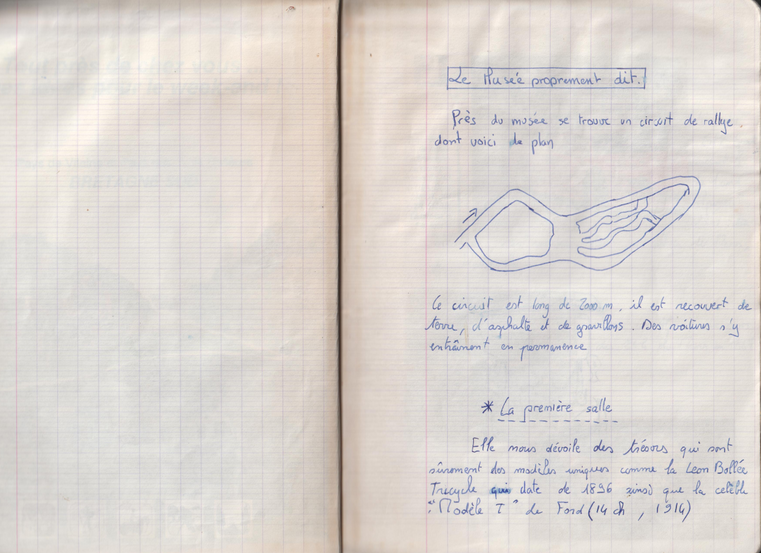 Le Musée proprement dit.
Près du musée se trouve un circuit de rallye.
dont voici le plan
Ce circuit est long de 2000 m, il est recouvert de
terre, d'asphalte et de gravillons. Des voitures s'y
entraînent en permanence
* La première salle
Elle nous dévoile des trésors qui sont
sûrement des modèles uniques comme la Leon Bollée
Tricycle qui date de 1896 ainsi que la célèble
"Modèle T" de Ford (14 ch, 1914)